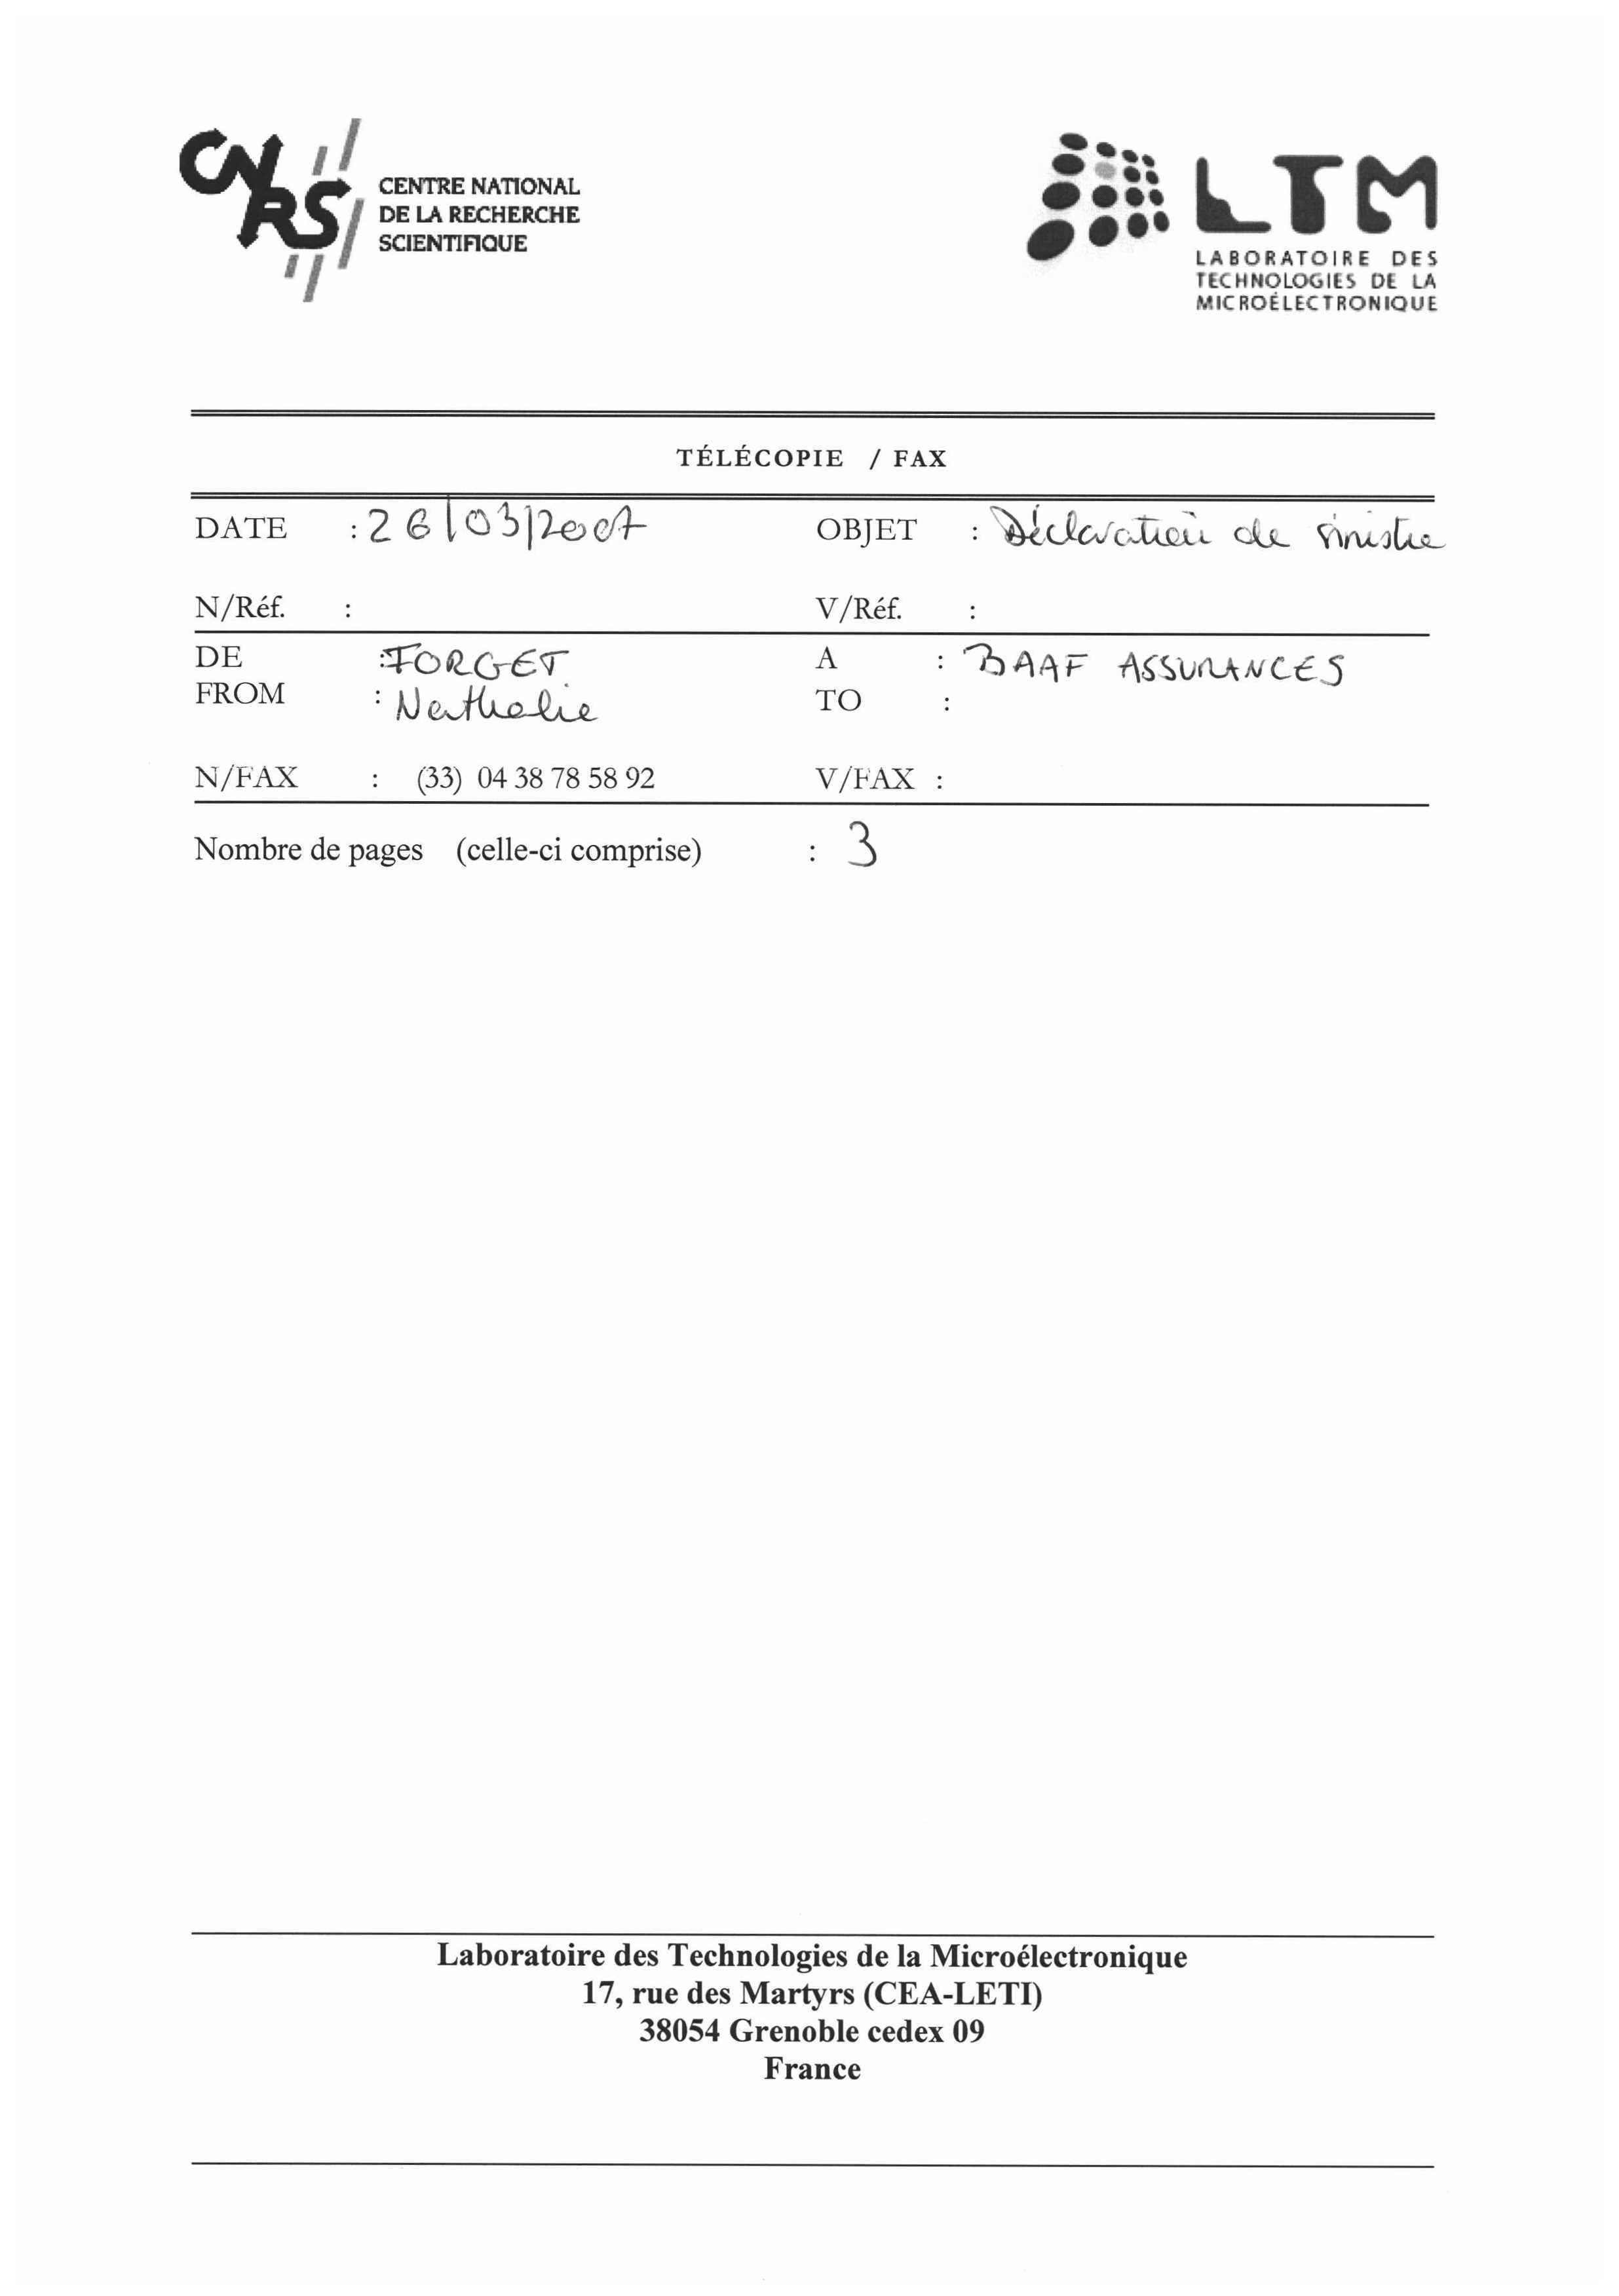 CNRS
CENTRE NATIONAL
DE LA RECHERCHE
SCIENTIFIQUE
LTM
LABORATOIRE DES
TECHNOLOGIES DE LA
MICROÉLECTRONIQUE
TÉLÉCOPIE / FAX
DATE : 26/03/2007 OBJET : Déclaration de sinistre
N/Réf. : V/Réf. :
DE : FORGET A : BAAF ASSURANCES
FROM : Nathalie TO :
N/FAX : (33) 04 38 78 58 92 V/FAX :
Nombre de pages (celle-ci comprise) : 3
Laboratoire des Technologies de la Microélectronique
17, rue des Martyrs (CEA-LETI)
38054 Grenoble cedex 09
France